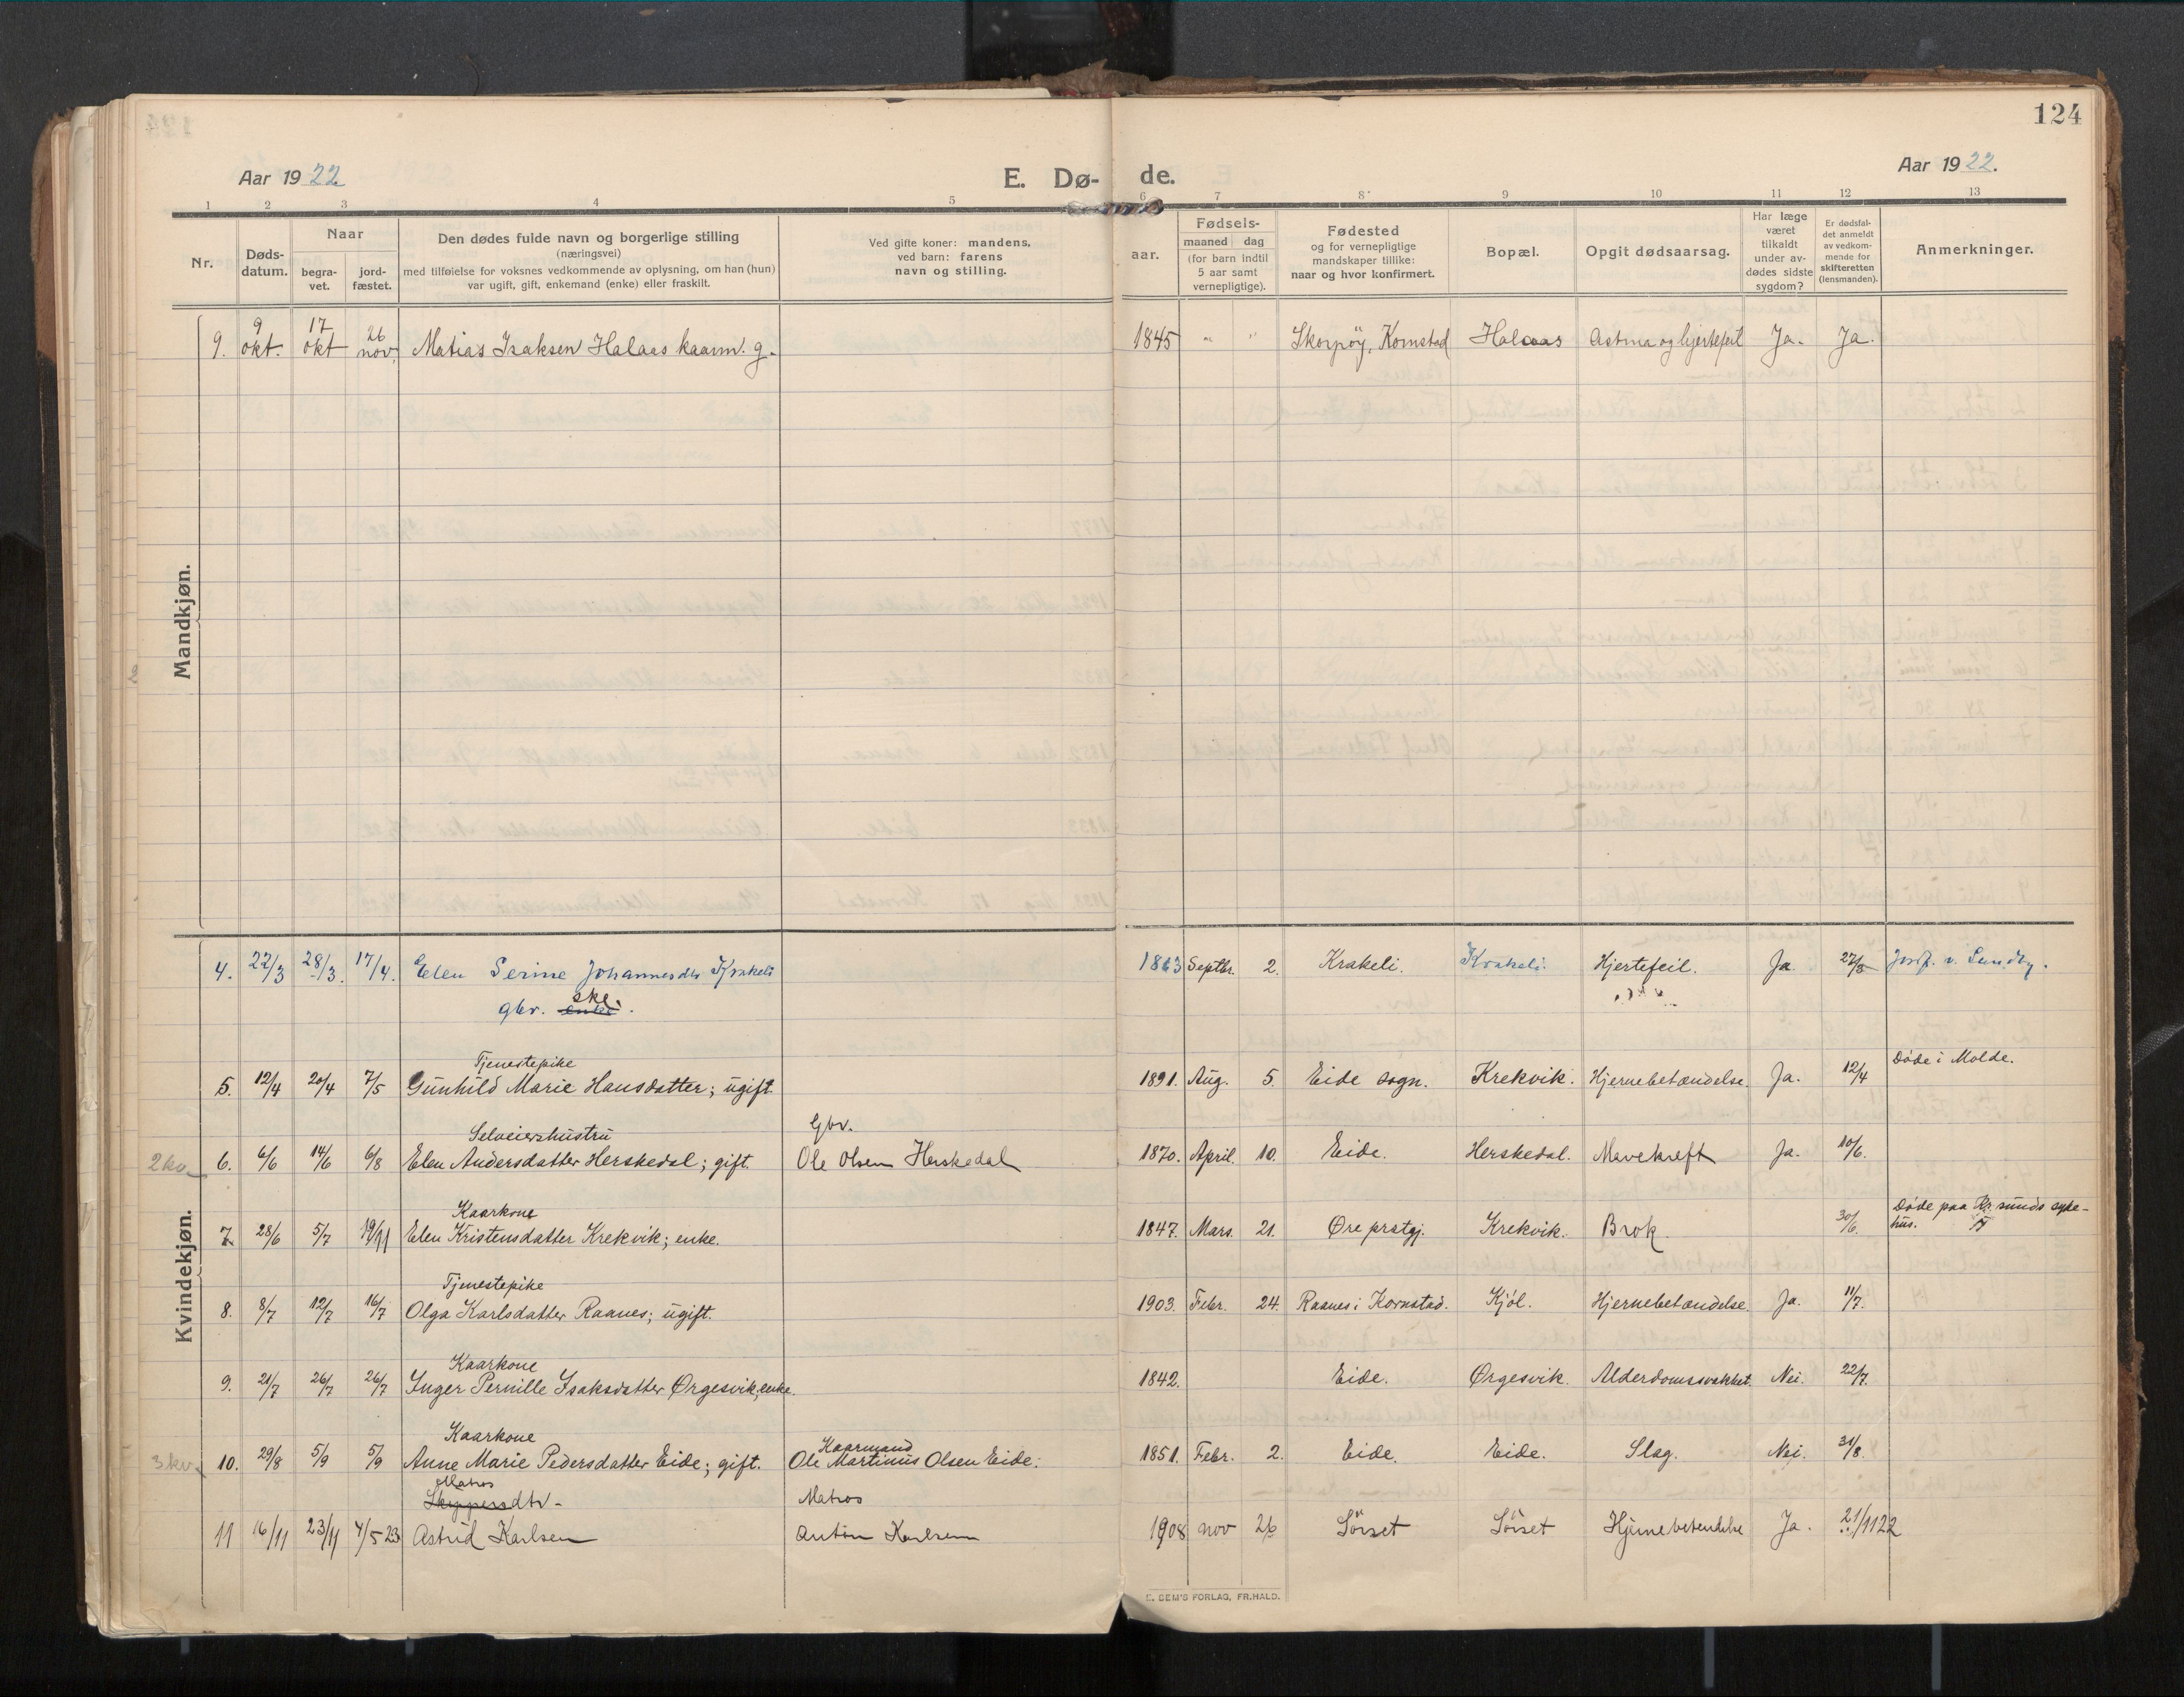 124
Aar 1922
E. Dø-
de.
Aar 1922.
1 2 3 4 5 6 7 8 9 10 11 12 13
Nr.
Døds-
datum.
Naar
begra-
vet.
jord-
fæstet.
Den dødes fulde navn og borgerlige stilling
(næringsvei)
med tilføielse for voksnes vedkommende av oplysning, om han (hun)
var ugift, gift, enkemand (enke) eller fraskilt.
Ved gifte koner: mandens,
ved barn: farens
navn og stilling.
aar.
Fødsels-
maaned dag
(for barn indtil
5 aar samt
vernepligtige).
Fødested
og for vernepligtige
mandskaper tillike:
naar og hvor konfirmert.
Bopæl.
Opgit dødsaarsag.
Har læge
været
tilkaldt
under av-
dødes sidste
sygdom?
Er dødsfal-
det anmeldt
av vedkom-
mende for
skifteretten
(lensmanden).
Anmerkninger.
Mandkjøn.
9. 9 okt. 17 okt 26 nov. Matias Isaksen Halaas kaarm. g. 1845 " " Skorpöy, Kornstad Halaas Astma og hjertefeil Ja. Ja.
Kvindekjøn.
4. 22/3 28/3. 17/4. Elen Serine Johannesdtr Krakeli 1863 Septbr. 2. Krakeli. Krakeli. Hjertefeil. Ja 27/3
gbr. enke. ske.
Tjenestepike
5. 12/4 20/4 7/5 Gunhild Marie Hansdatter; ugift. 1891. Aug. 5. Eide sogn. Krekvik. Hjernebetændelse. Ja. 12/4 Døde i Molde.
Selveierhustru Gbr.
2 kv. 6. 6/6 14/6 6/8 Elen Andersdatter Herskedal; gift. Ole Olsen Herskedal 1870. April. 10. Eide. Herskedal. Mavekreft Ja. 10/6.
Kaarkone
7. 28/6 5/7 19/11 Elen Kristensdatter Krekvik; enke. 1847. Mars. 21. Øre prstgj. Krekvik. Brok. 30/6. Døde paa Kr.sunds syke-
hus.
Tjenestepike
8. 8/7 12/7 16/7 Olga Karlsdatter Raanes; ugift. 1903. Febr. 24. Raanes i Kornstad. Kjøl. Hjernebetændelse. Ja. 11/7.
Kaarkone
9. 21/7 26/7 26/7 Inger Pernille Isaksdatter Ørgesvik, enke. 1842. Eide. Ørgesvik. Alderdomssvakhet. Nei. 22/7.
Kaarkone Kaarmand
3 kv. 10. 29/8 5/9 5/9 Anne Marie Pedersdatter Eide; gift. Ole Martinus Olsen Eide. 1851. Febr. 2. Eide. Eide. Slag. Nei. 31/8.
Matros
Skippersdtr - Matros
11 16/11 23/11 4/5 23 Astrid Karlsen Anton Karlsen 1908 nov 26 Sörset Sörset Hjernebetendelse Ja. 21/11 22
E. SEM'S FORLAG, FR.HALD.